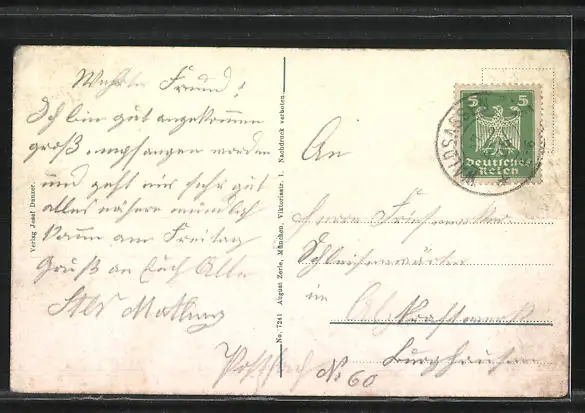 Werter Freund!
Ich bin gut angekommen
groß empfangen worden
und geht mir sehr gut
alles nähere mündlich
kann am Freitag
Gruß an Euch Alle
Postfach No 60
Verlag Josef Danzer.
No. 7241 August Zerle, München, Viktoriastr. 1. Nachdruck verboten.
5 5
Deutsches
Reich
WALDSASSEN
An
Herrn
im
Kraftwerk
Burghausen